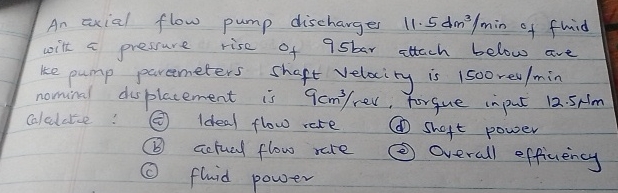 An axial flow pump discharges 11.5 dm³/min of fluid
with a pressure rise of 95bar attach below are
the pump parameters shaft velocity is 1500 rev/min
nominal displacement is 9cm³/rev, torque input 12.5Nm
Calculate : ⓐ Ideal flow rate ⓓ Shaft power
ⓑ actual flow rate ⓔ Overall efficiency
ⓒ fluid power